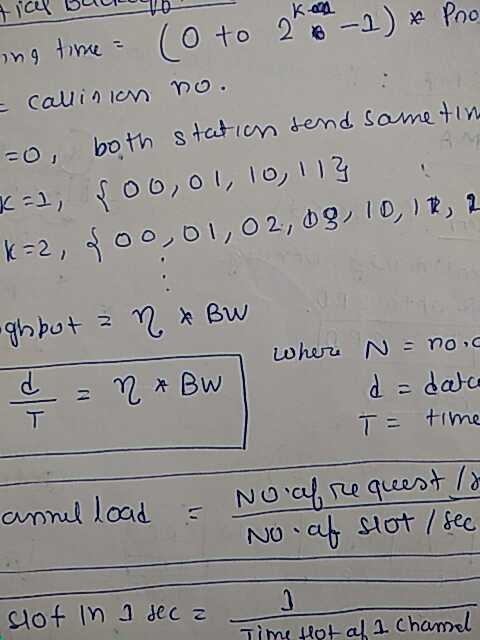 ing time = (0 to 2^k - 1) * Pro
= callision no.
=0, both station send same tim
k=1, {00, 01, 10, 11}
k=2, {00, 01, 02, 03, 10, 11,
ghput = η * BW
where N = no.o
d/T = η * BW
d = data
T = time
annel load = No. of request /s / No. of slot / sec
slot in 1 sec = 1 / Time slot of 1 channel